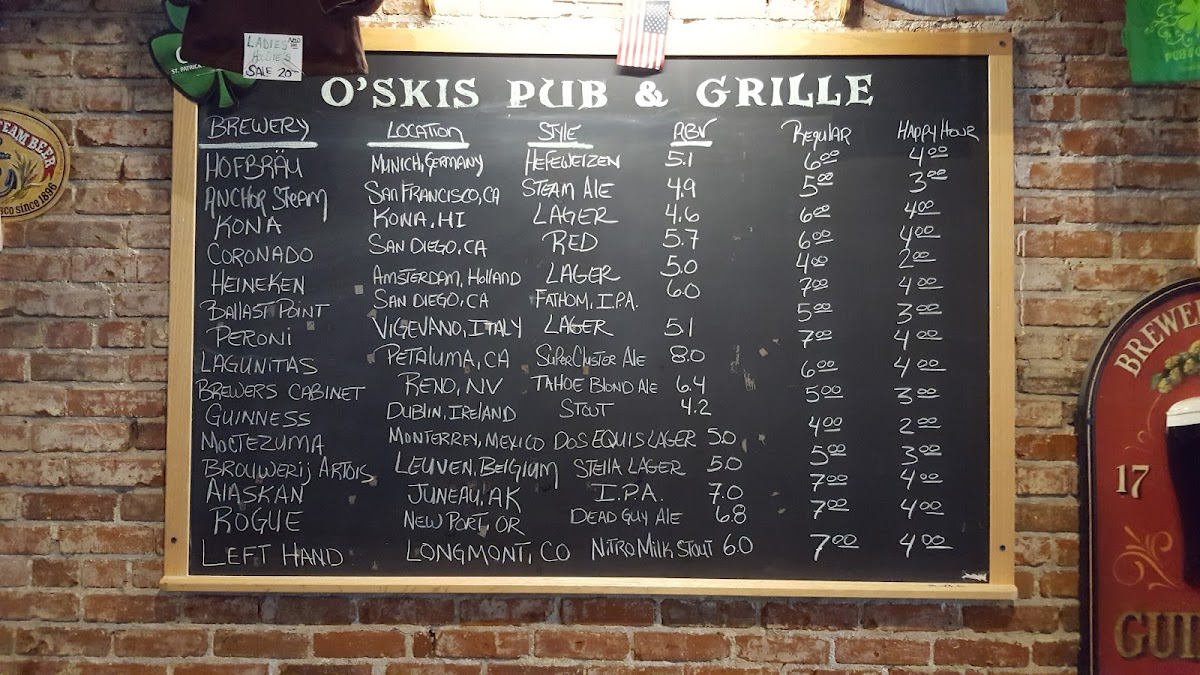 LADIES NEW
HOODIE'S
SALE 20-
ST. PATRICK
O'SKIS PUB & GRILLE
BREWERY LOCATION STYLE ABV REGULAR HAPPY HOUR
HOFBRÄU MUNICH, GERMANY HEFEWEIZEN 5.1 600 400
ANCHOR STEAM SAN FRANCISCO, CA STEAM ALE 4.9 500 300
KONA KONA, HI LAGER 4.6 600 400
CORONADO SAN DIEGO, CA RED 5.7 600 400
HEINEKEN AMSTERDAM, HOLLAND LAGER 5.0 400 200
BALLAST POINT SAN DIEGO, CA FATHOM, I.P.A. 6.0 700 400
PERONI VIGEVANO, ITALY LAGER 5.1 500 300
LAGUNITAS PETALUMA, CA SUPER CLUSTER ALE 8.0 700 400
BREWERS CABINET RENO, NV TAHOE BLOND ALE 6.4 600 400
GUINNESS DUBLIN, IRELAND STOUT 4.2 500 300
MOCTEZUMA MONTERREY, MEXICO DOS EQUIS LAGER 5.0 400 200
BROUWERIJ ARTOIS LEUVEN, BELGIUM STELLA LAGER 5.0 500 300
ALASKAN JUNEAU, AK I.P.A. 7.0 700 400
ROGUE NEW PORT, OR DEAD GUY ALE 6.8 700 400
LEFT HAND LONGMONT, CO NITRO MILK STOUT 6.0 700 400
TEAM BEER
sco since 1896
BREWER
17
GUI